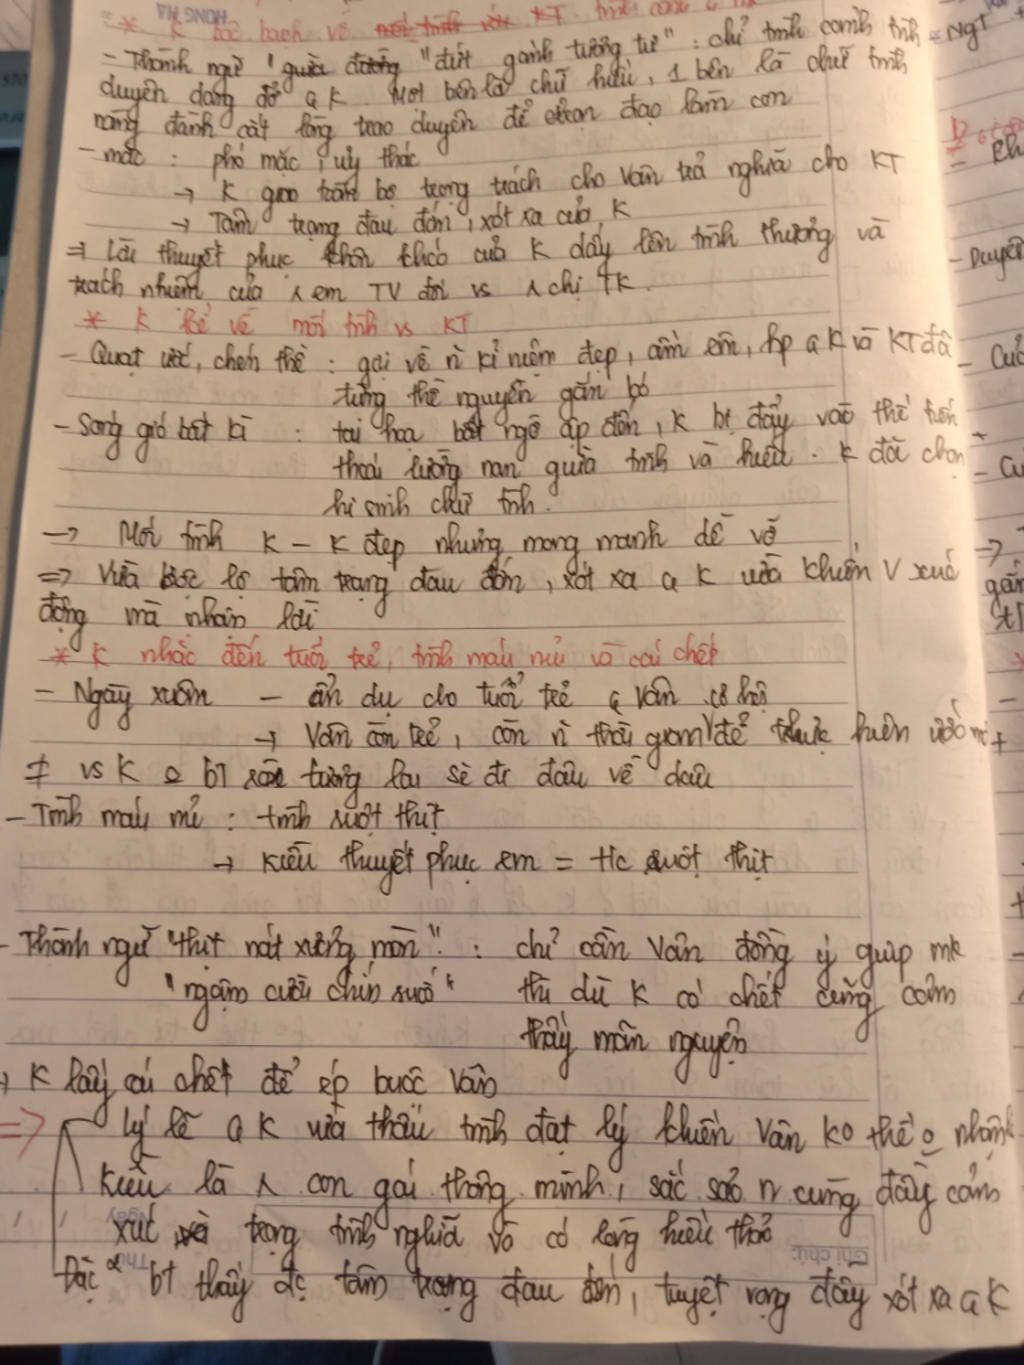 * K bộc bạch về KT
- Thành ngữ "đứt gánh tương tư" : chỉ tình cảnh tình
duyên dang dở ạ K. Một bên là chữ hiếu, 1 bên là chữ tình
nàng đành cắt lòng trao duyên để chọn đạo làm con
- mặc : phó mặc, uỷ thác
→ K giao toàn bộ trọng trách cho Vân trả nghĩa cho KT
→ Tâm trạng đau đớn, xót xa của K
⇒ Lời thuyết phục khôn khéo của K dấy lên tình thương và
trách nhiệm của 1 em TV đối vs 1 chị TK.
* K kể về mối tình vs KT
- Quạt ước, chén thề : gợi về n kỉ niệm đẹp, ấm êm, hp ạ K và KT đã
từng thề nguyền gắn bó
- Sóng gió bất kì : tai hoạ bất ngờ ập đến, K bị đẩy vào thế tiến
thoái lưỡng nan giữa tình và hiếu. K đã chọn
hi sinh chữ tình.
→ Mối tình K - K đẹp nhưng mong manh dễ vỡ
⇒ Vừa bộc lộ tâm trạng đau đớn, xót xa ạ K vừa khiến V xúc
động mà nhận lời
* K nhắc đến tuổi trẻ, tình máu mủ và cái chết
- Ngày xuân - ẩn dụ cho tuổi trẻ ạ Vân
→ Vân còn trẻ, còn n thời gian để thực hiện ước mơ
≠ vs K o bt tương lai sẽ đi đâu về đâu
- Tình máu mủ : tình ruột thịt
→ Kiều thuyết phục em = t/c ruột thịt
- Thành ngữ "thịt nát xương mòn" : chỉ cần Vân đồng ý giúp mk
"ngậm cười chín suối" thì dù K có chết cũng cảm
thấy mãn nguyện
→ K lấy cái chết để ép buộc Vân
⇒ Lý lẽ ạ K vừa thấu tình đạt lý khiến Vân ko thể o nhận
Kiều là 1 con gái thông minh, sắc sảo n cũng đầy cảm
xúc trọng tình nghĩa và có lòng hiếu thảo
Đặc bt thấy đc tâm trạng đau đớn, tuyệt vọng đầy xót xa ạ K